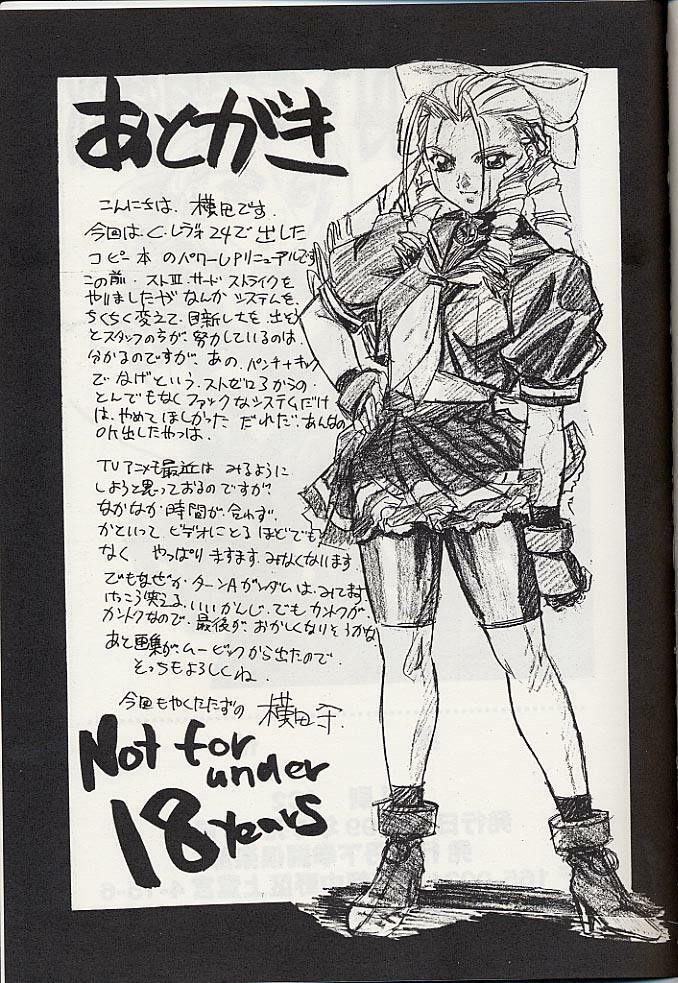 あとがき
こんにちは、横田です。
今回は、C.レヴォ24で出した
コピー本のパワーUPリニューアルです
この前、ストⅢ.サードストライクを
やりましたがなんかシステムを、
ちくちく変えて、目新しさを、出そう
とスタッフの方が、努力しているのは、
分かるのですが、あの、パンチ+キック
でなげという、ストゼロ3からの、
とんでもなくファックなシステムだけ
は、やめてほしかった だれだ、あんなの
OK出したやつは、
TVアニメも最近は みるように
しようと思っておるのですが、
なかなか時間が合わず、
かといって ビデオにとるほどでも
なく やっぱり ますます、みなくなります
でもなぜか ターンAガンダムは、みてます
けっこう笑える、いいかんじ、でも カントクが、
カントクなので、最後が、おかしくなりそうかな
あと画集が、ムービックから出たので、
そっちもよろしくね、
今回もやくたたずの 横田守
Not for
under
18 years